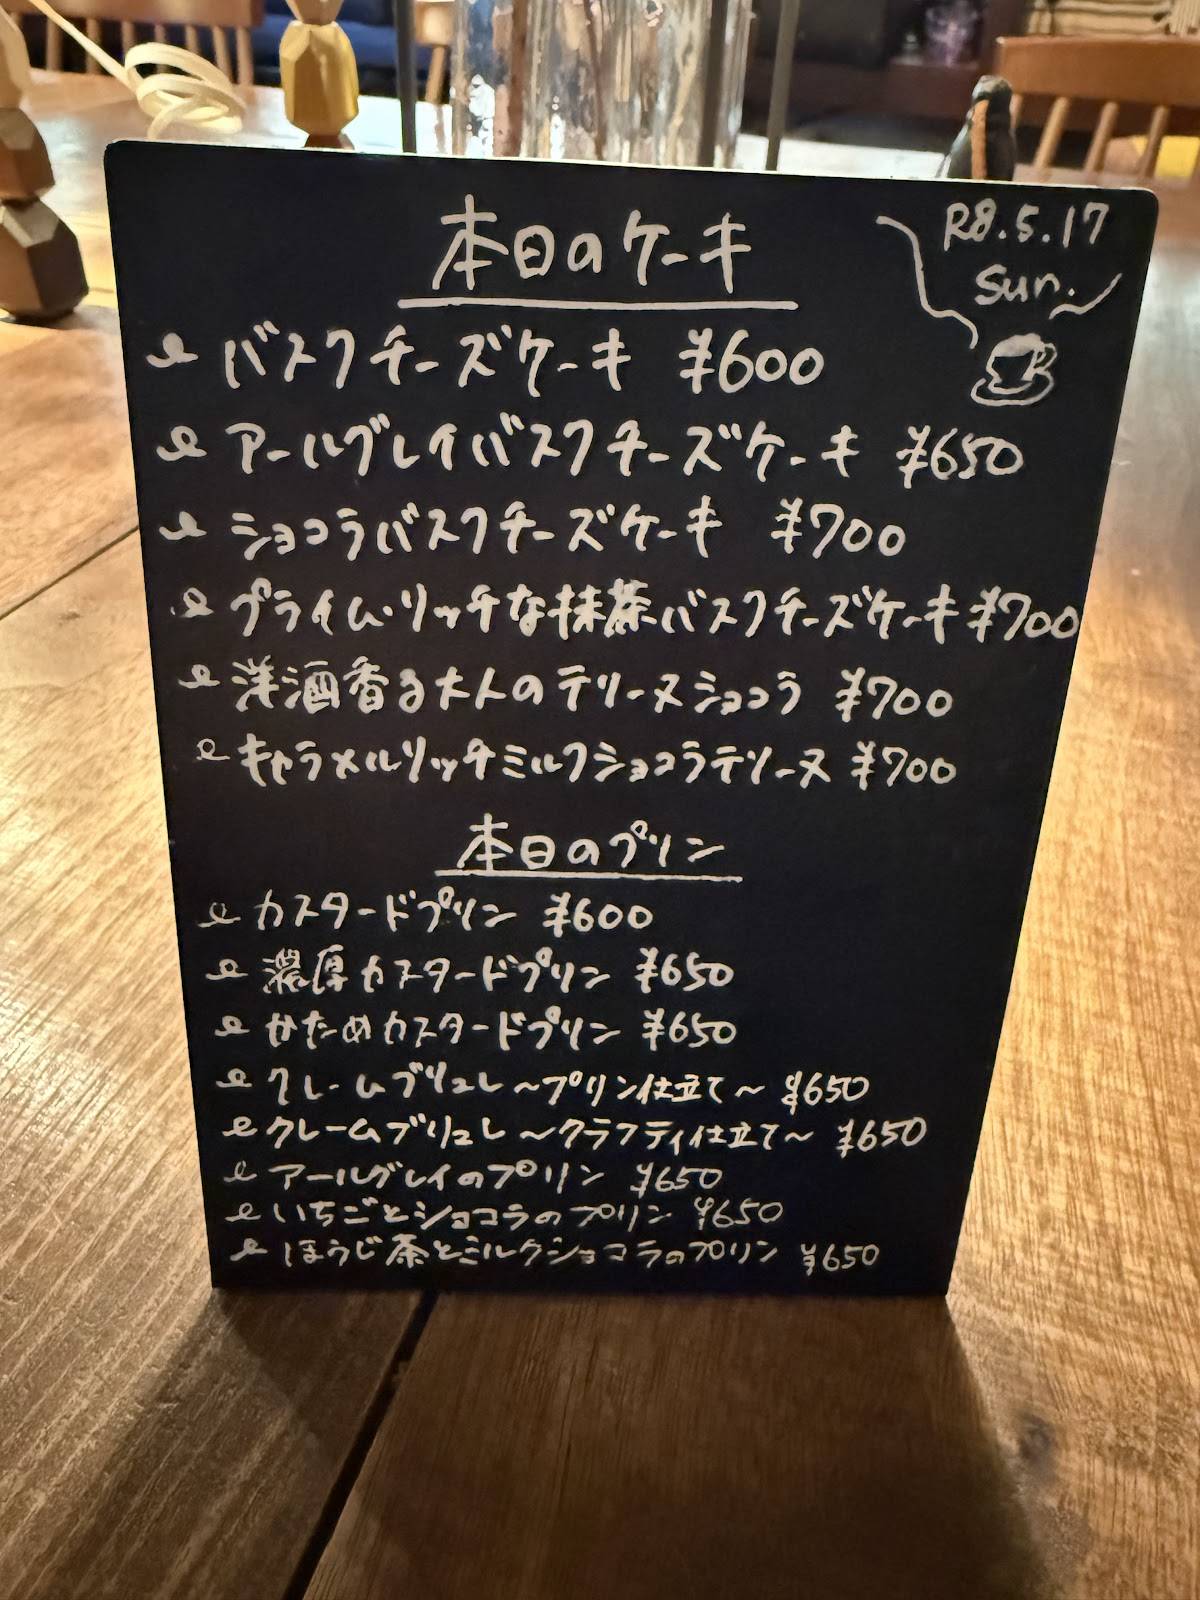 本日のケーキ
R8.5.17
Sun.
バスクチーズケーキ ¥600
アールグレイバスクチーズケーキ ¥650
ショコラバスクチーズケーキ ¥700
プライムリッチな抹茶バスクチーズケーキ ¥700
洋酒香る大人のテリーヌショコラ ¥700
キャラメルリッチミルクショコラテリーヌ ¥700
本日のプリン
カスタードプリン ¥600
濃厚カスタードプリン ¥650
かためカスタードプリン ¥650
クレームブリュレ〜プリン仕立て〜 ¥650
クレームブリュレ〜クラフティ仕立て〜 ¥650
アールグレイのプリン ¥650
いちごとショコラのプリン ¥650
ほうじ茶とミルクショコラのプリン ¥650